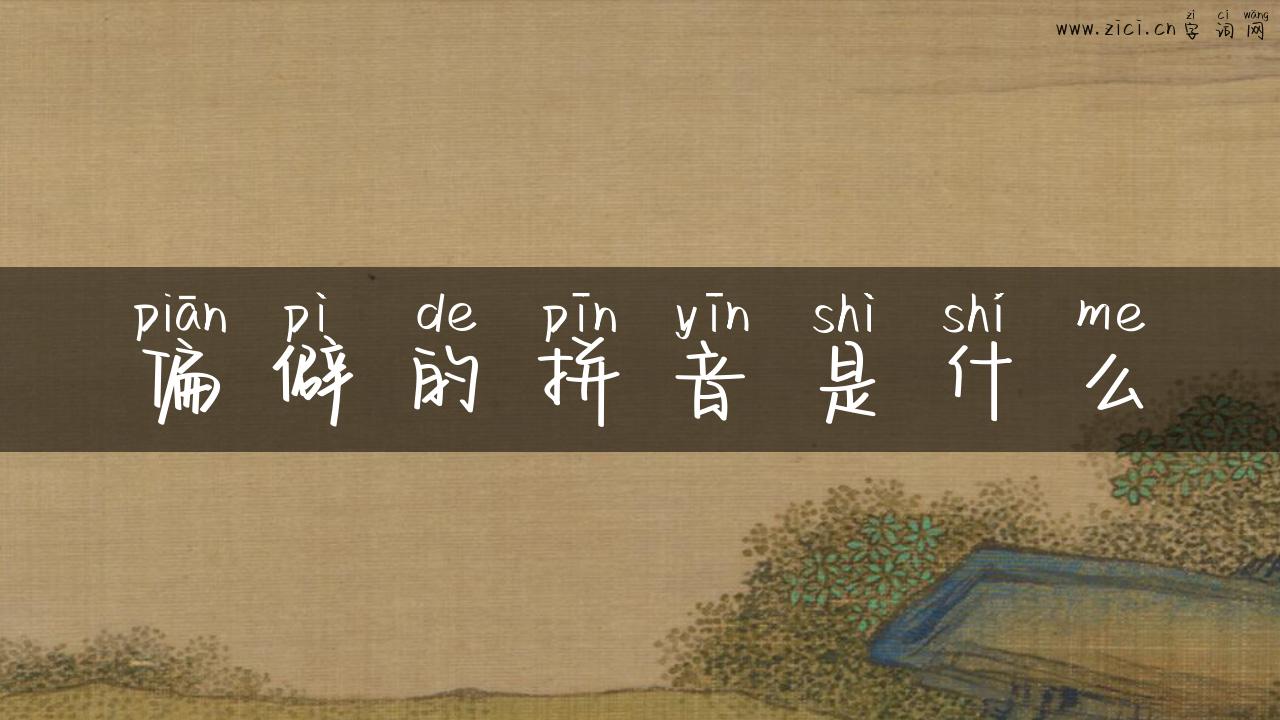 zì cí wǎng
www.zici.cn 字 词 网
piān pì de pīn yīn shì shí me
偏 僻 的 拼 音 是 什 么